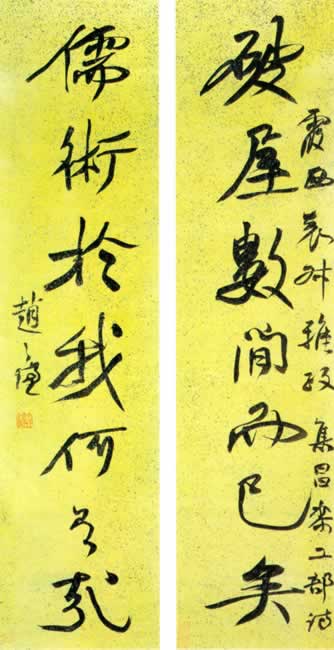 霞西表叔雅政 集昌黎工部詩
破屋數間而已矣
儒術於我何有哉
趙之謙